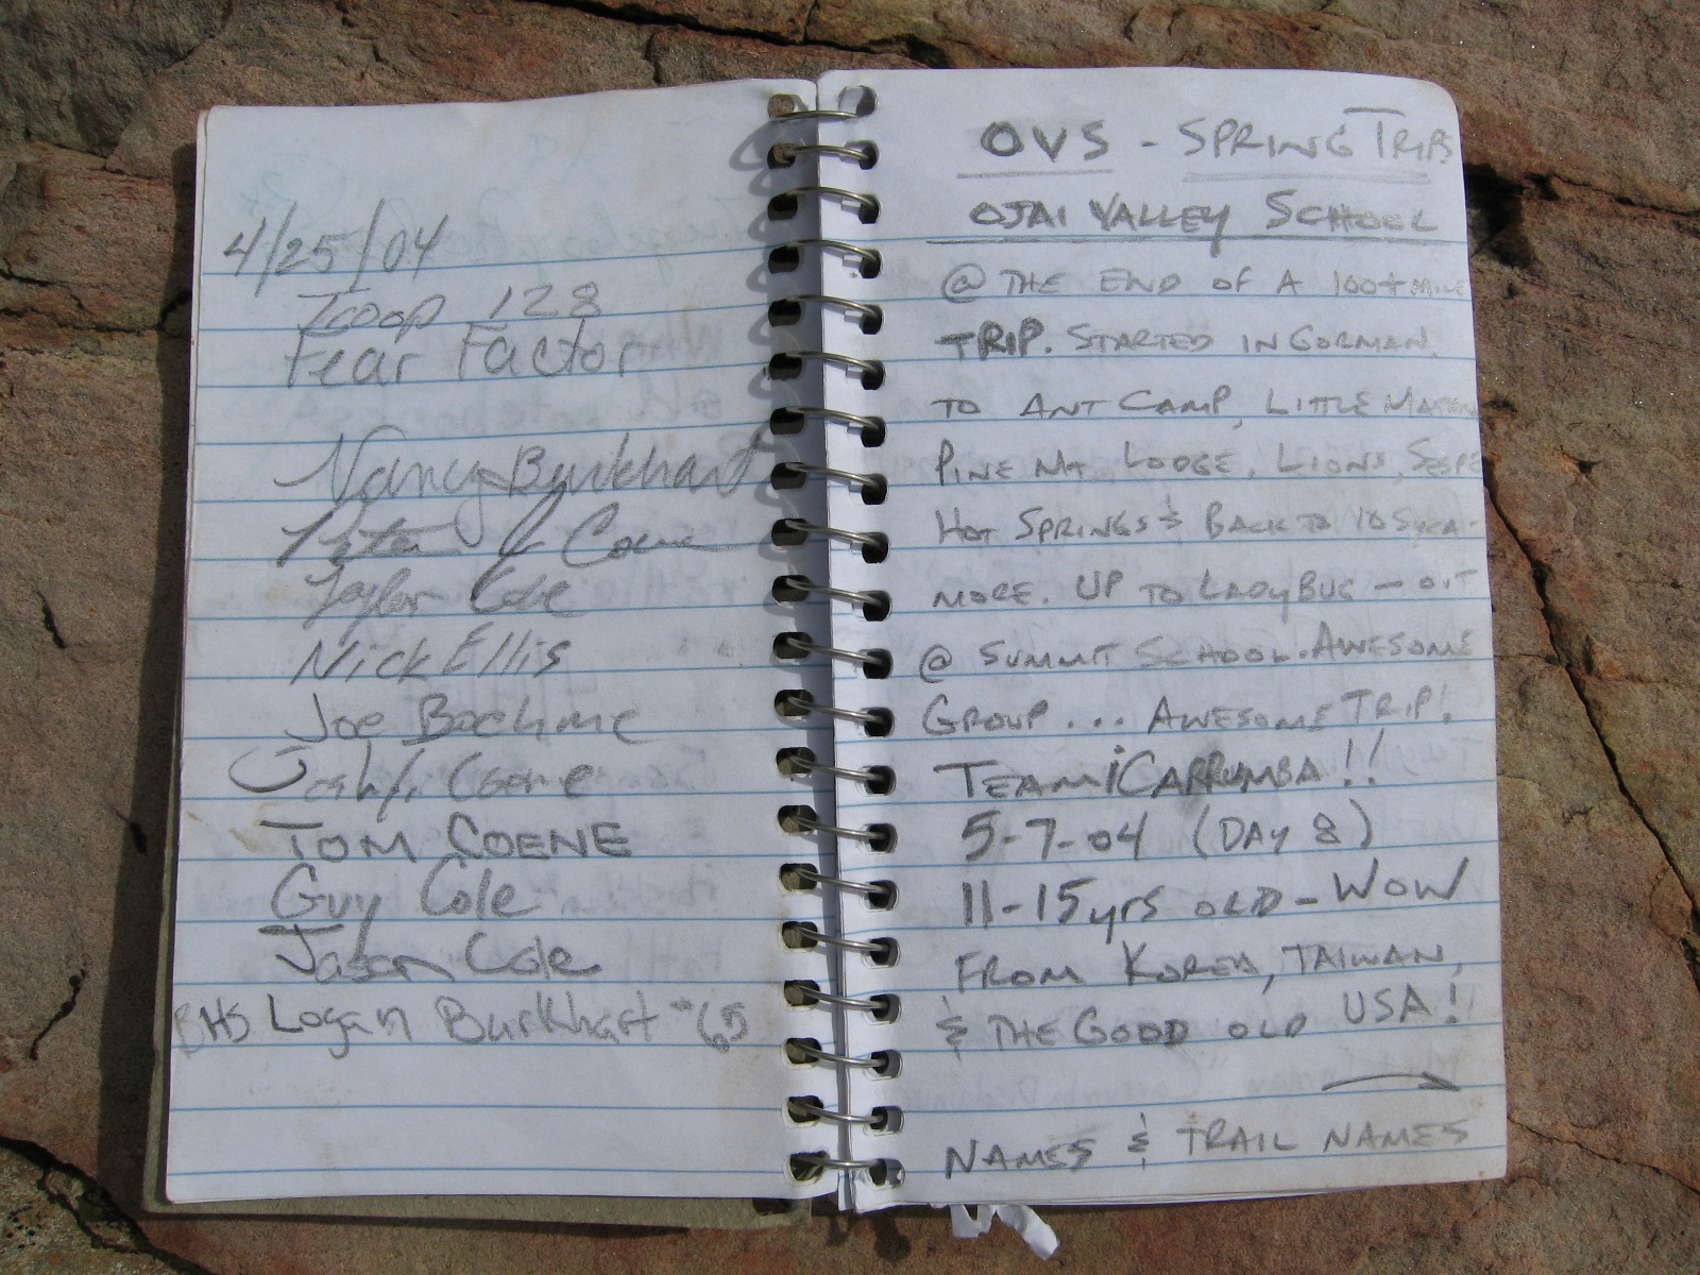 4/25/04
Troop 128
Fear Factor
Nancy Burkhart
Peter J Coene
Taylor Cole
Nick Ellis
Joe Boehme
Josh J. Coene
TOM COENE
Guy Cole
Jason Cole
BHS Logan Burkhart #65
OVS - SPRING TRIPS
OJAI VALLEY SCHOOL
@ THE END OF A 100+ MILE
TRIP. STARTED IN GORMAN.
TO ANT CAMP, LITTLE
PINE MT LODGE, LIONS, SESPE
HOT SPRINGS & BACK TO SYCA-
MORE. UP TO LADYBUG - OUT
@ SUMMIT SCHOOL. AWESOME
GROUP... AWESOME TRIP!
TEAM ¡CARRUMBA!!
5-7-04 (DAY 8)
11-15 yrs OLD - WOW
FROM KOREA, TAIWAN,
& THE GOOD OLD USA!!
NAMES & TRAIL NAMES